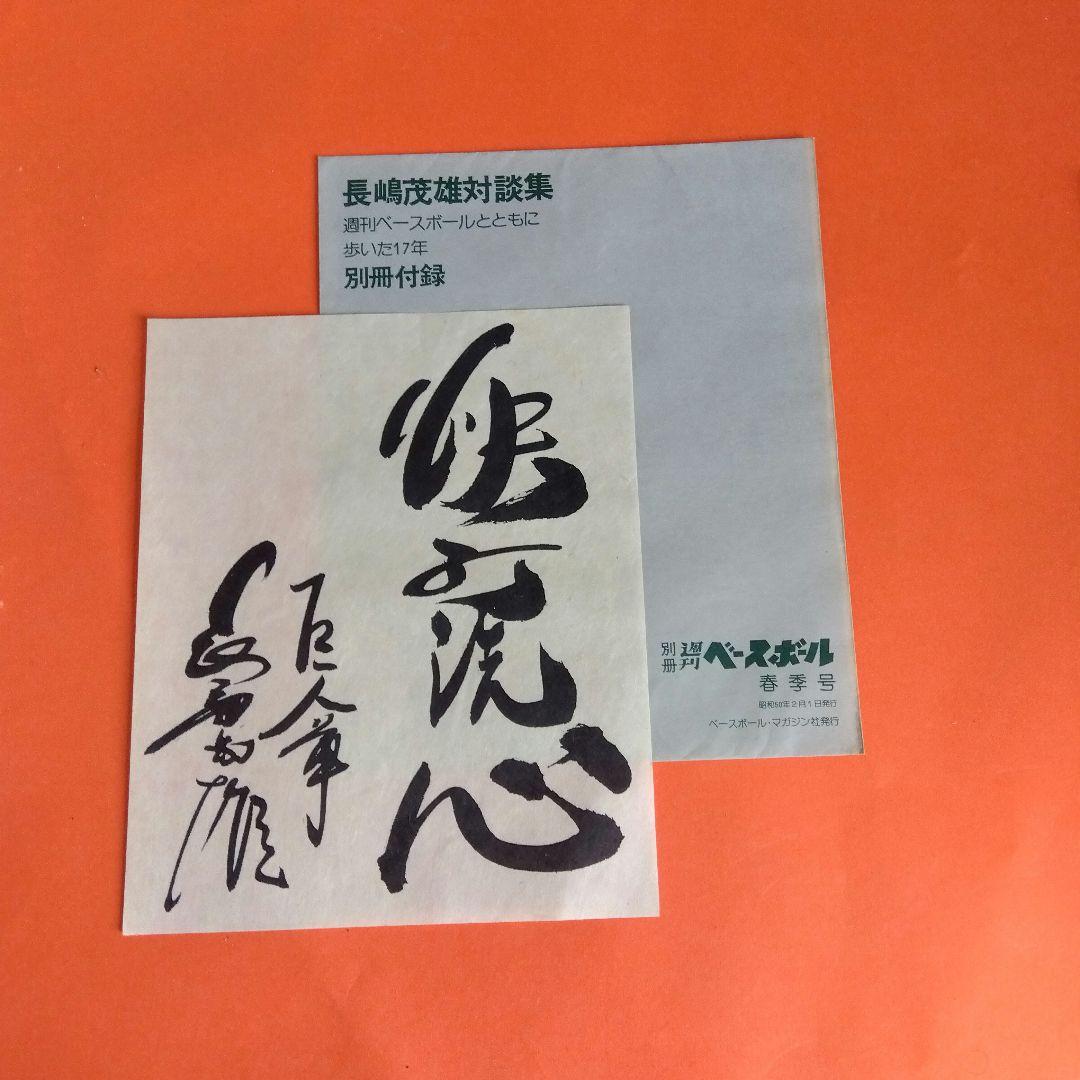 長嶋茂雄対談集
週刊ベースボールとともに
歩いた17年
別冊付録
快打洗心
巨人軍
長嶋茂雄
別冊 週刊 ベースボール
春季号
昭和50年2月1日発行
ベースボール・マガジン社発行